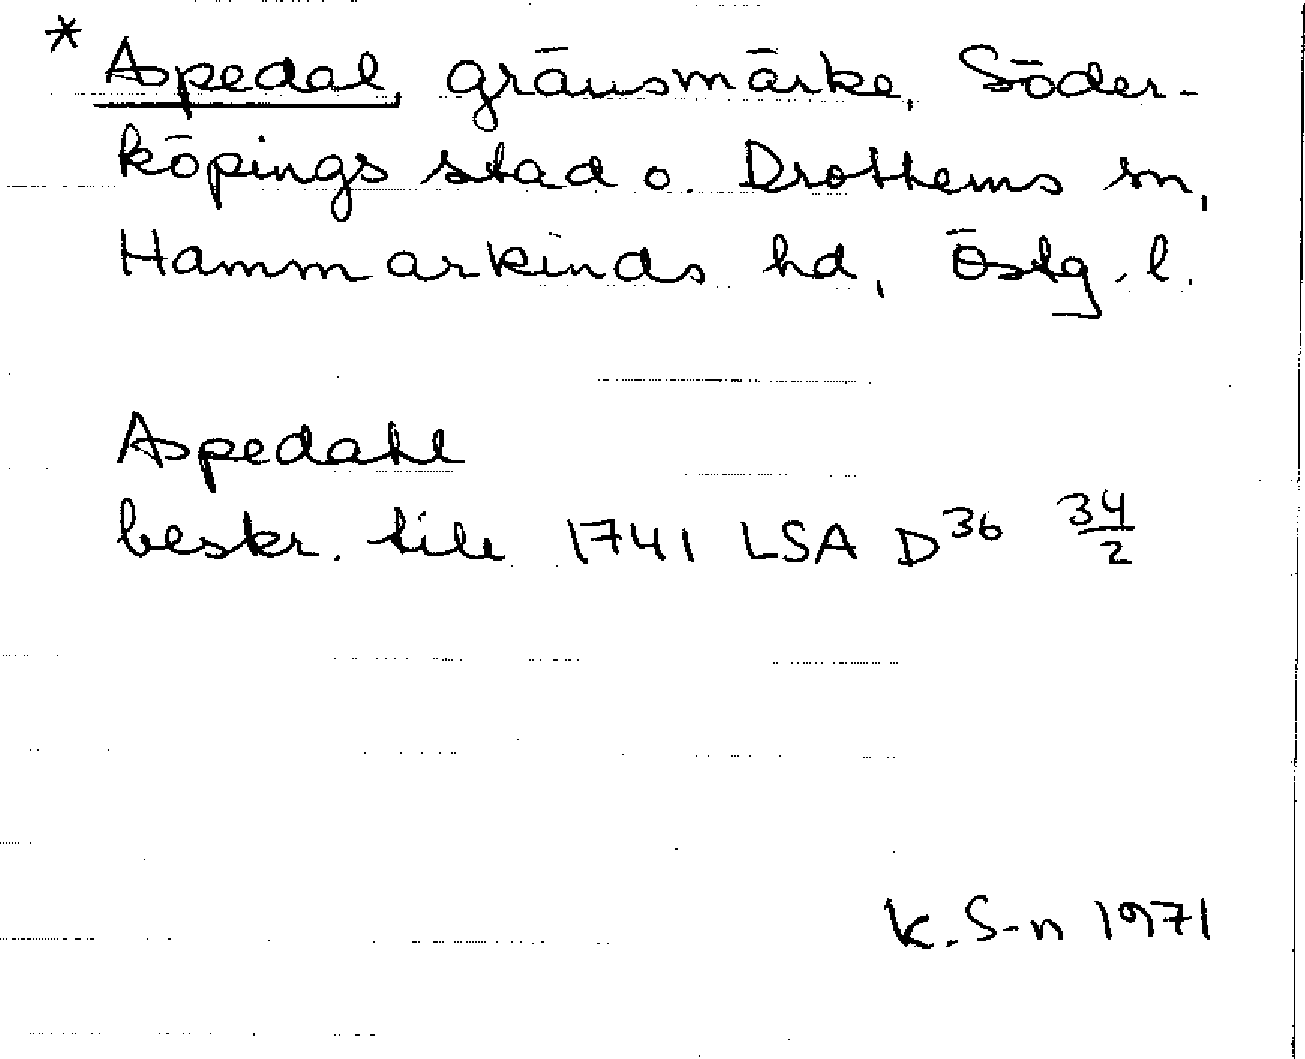 * Aspedal, gränsmärke, Söder-
köpings stad o. Drothems sn,
Hammarkinds hd, Östg. l.
Aspedahl
beskr. till 1741 LSA D36 34/2
K. S-n 1971